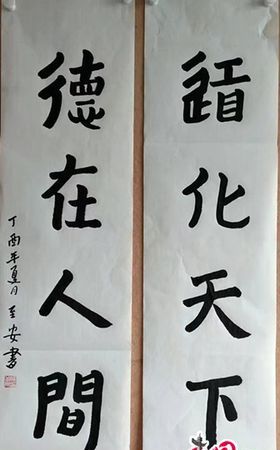 道化天下
德在人間
丁酉年夏月至安書